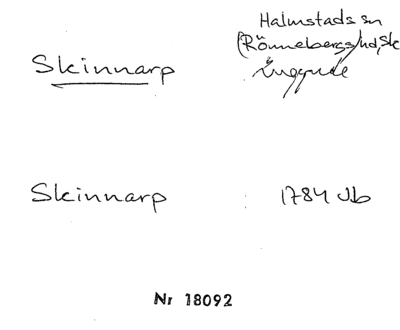 Halmstads sn
(Rönnebergs hd, Sk
Skinnarp
Luggude
Skinnarp : 1784 Jb
Nr 18092